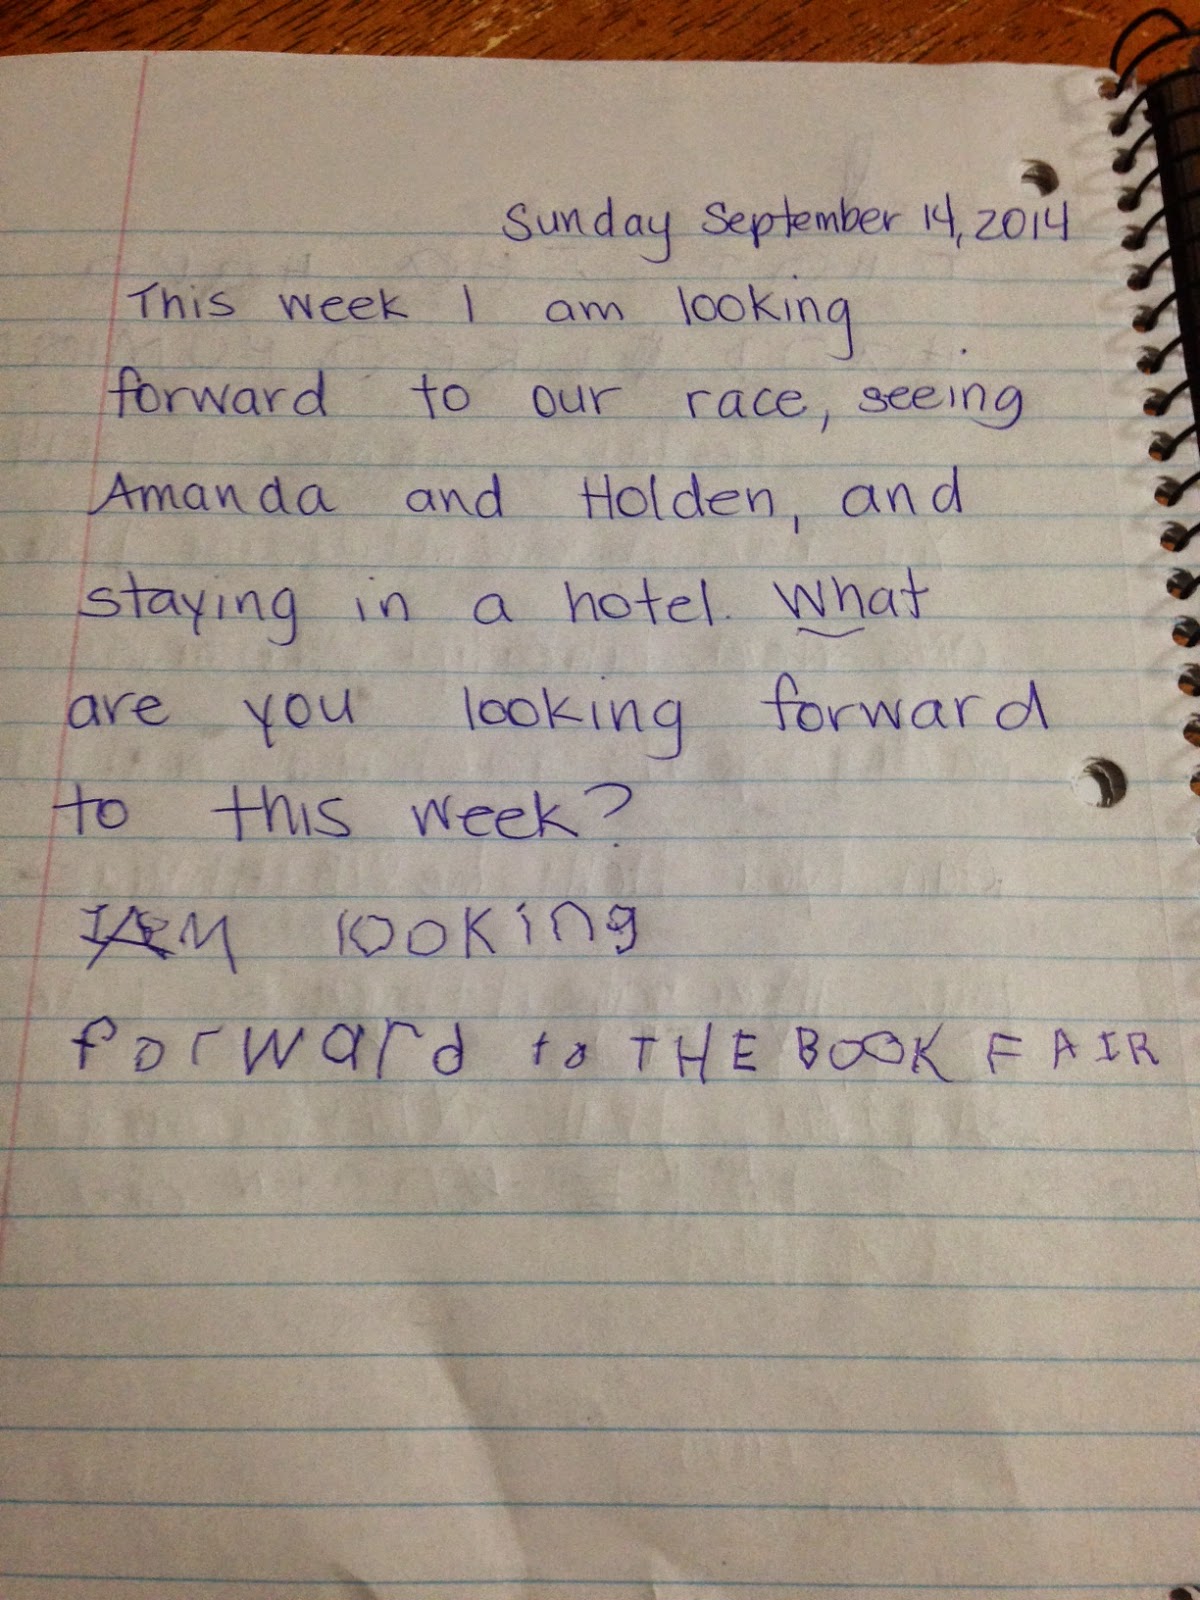 Sunday September 14, 2014
This week I am looking
forward to our race, seeing
Amanda and Holden, and
staying in a hotel. What
are you looking forward
to this week?
I AM looking
forward to THE BOOK FAIR